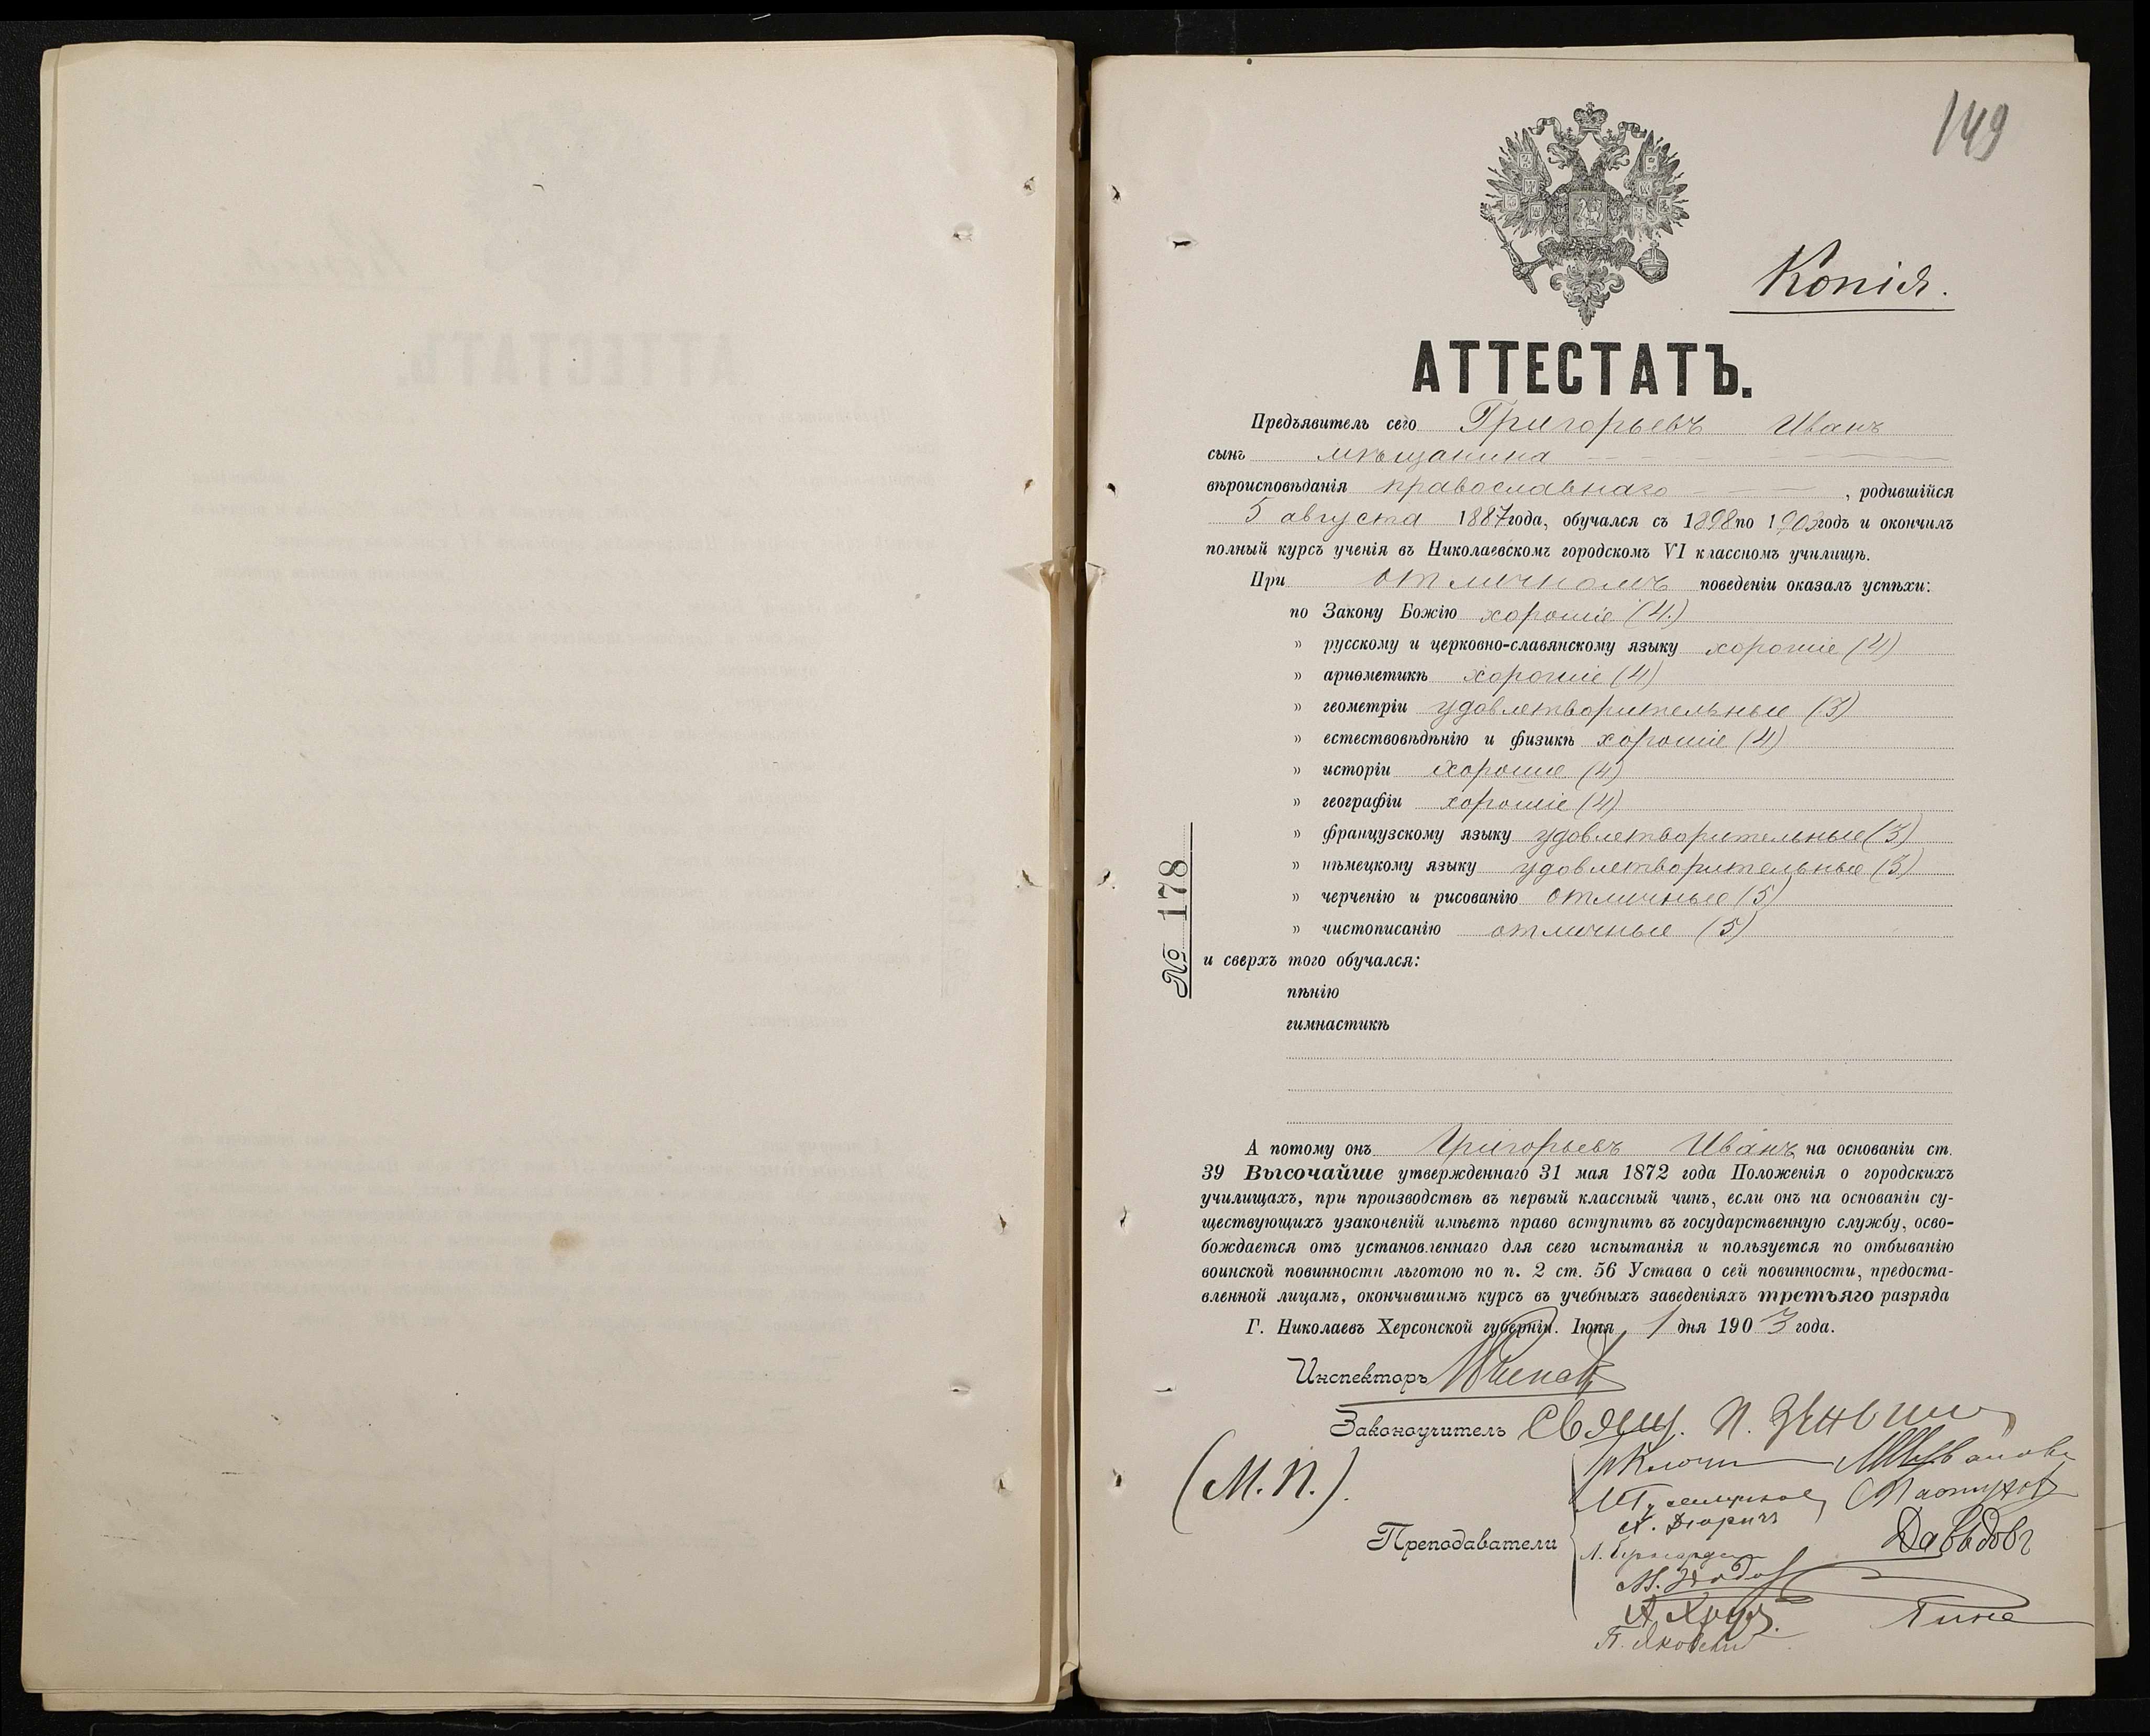 149
Копія.
АТТЕСТАТЪ.
Предъявитель сего Григорьевъ Иванъ
сынъ мѣщанина
вѣроисповѣданія православнаго, родившійся
5 августа 1887 года, обучался съ 1898 по 1903 годъ и окончилъ
полный курсъ ученія въ Николаевскомъ городскомъ VI классномъ училищѣ.
При отличномъ поведеніи оказалъ успѣхи:
по Закону Божію хорошіе (4.)
" русскому и церковно-славянскому языку хорошіе (4)
" ариѳметикѣ хорошіе (4)
" геометріи удовлетворительные (3)
" естествовѣдѣнію и физикѣ хорошіе (4)
" исторіи хорошіе (4)
" географіи хорошіе (4)
" французскому языку удовлетворительные (3)
" нѣмецкому языку удовлетворительные (3)
" черченію и рисованію отличные (5)
" чистописанію отличные (5)
№ 178
и сверхъ того обучался:
пѣнію
гимнастикѣ
А потому онъ Григорьевъ Иванъ на основаніи ст.
39 Высочайше утвержденнаго 31 мая 1872 года Положенія о городскихъ
училищахъ, при производствѣ въ первый классный чинъ, если онъ на основаніи су-
ществующихъ узаконеній имѣетъ право вступить въ государственную службу, осво-
бождается отъ установленнаго для сего испытанія и пользуется по отбыванію
воинской повинности льготою по п. 2 ст. 56 Устава о сей повинности, предоста-
вленной лицамъ, окончившимъ курсъ въ учебныхъ заведеніяхъ третьяго разряда
Г. Николаевъ Херсонской губерніи. Іюня 1 дня 1903 года.
Инспекторъ
Законоучитель Свящ. П.
(М.П.).
Преподаватели
Давыдовъ